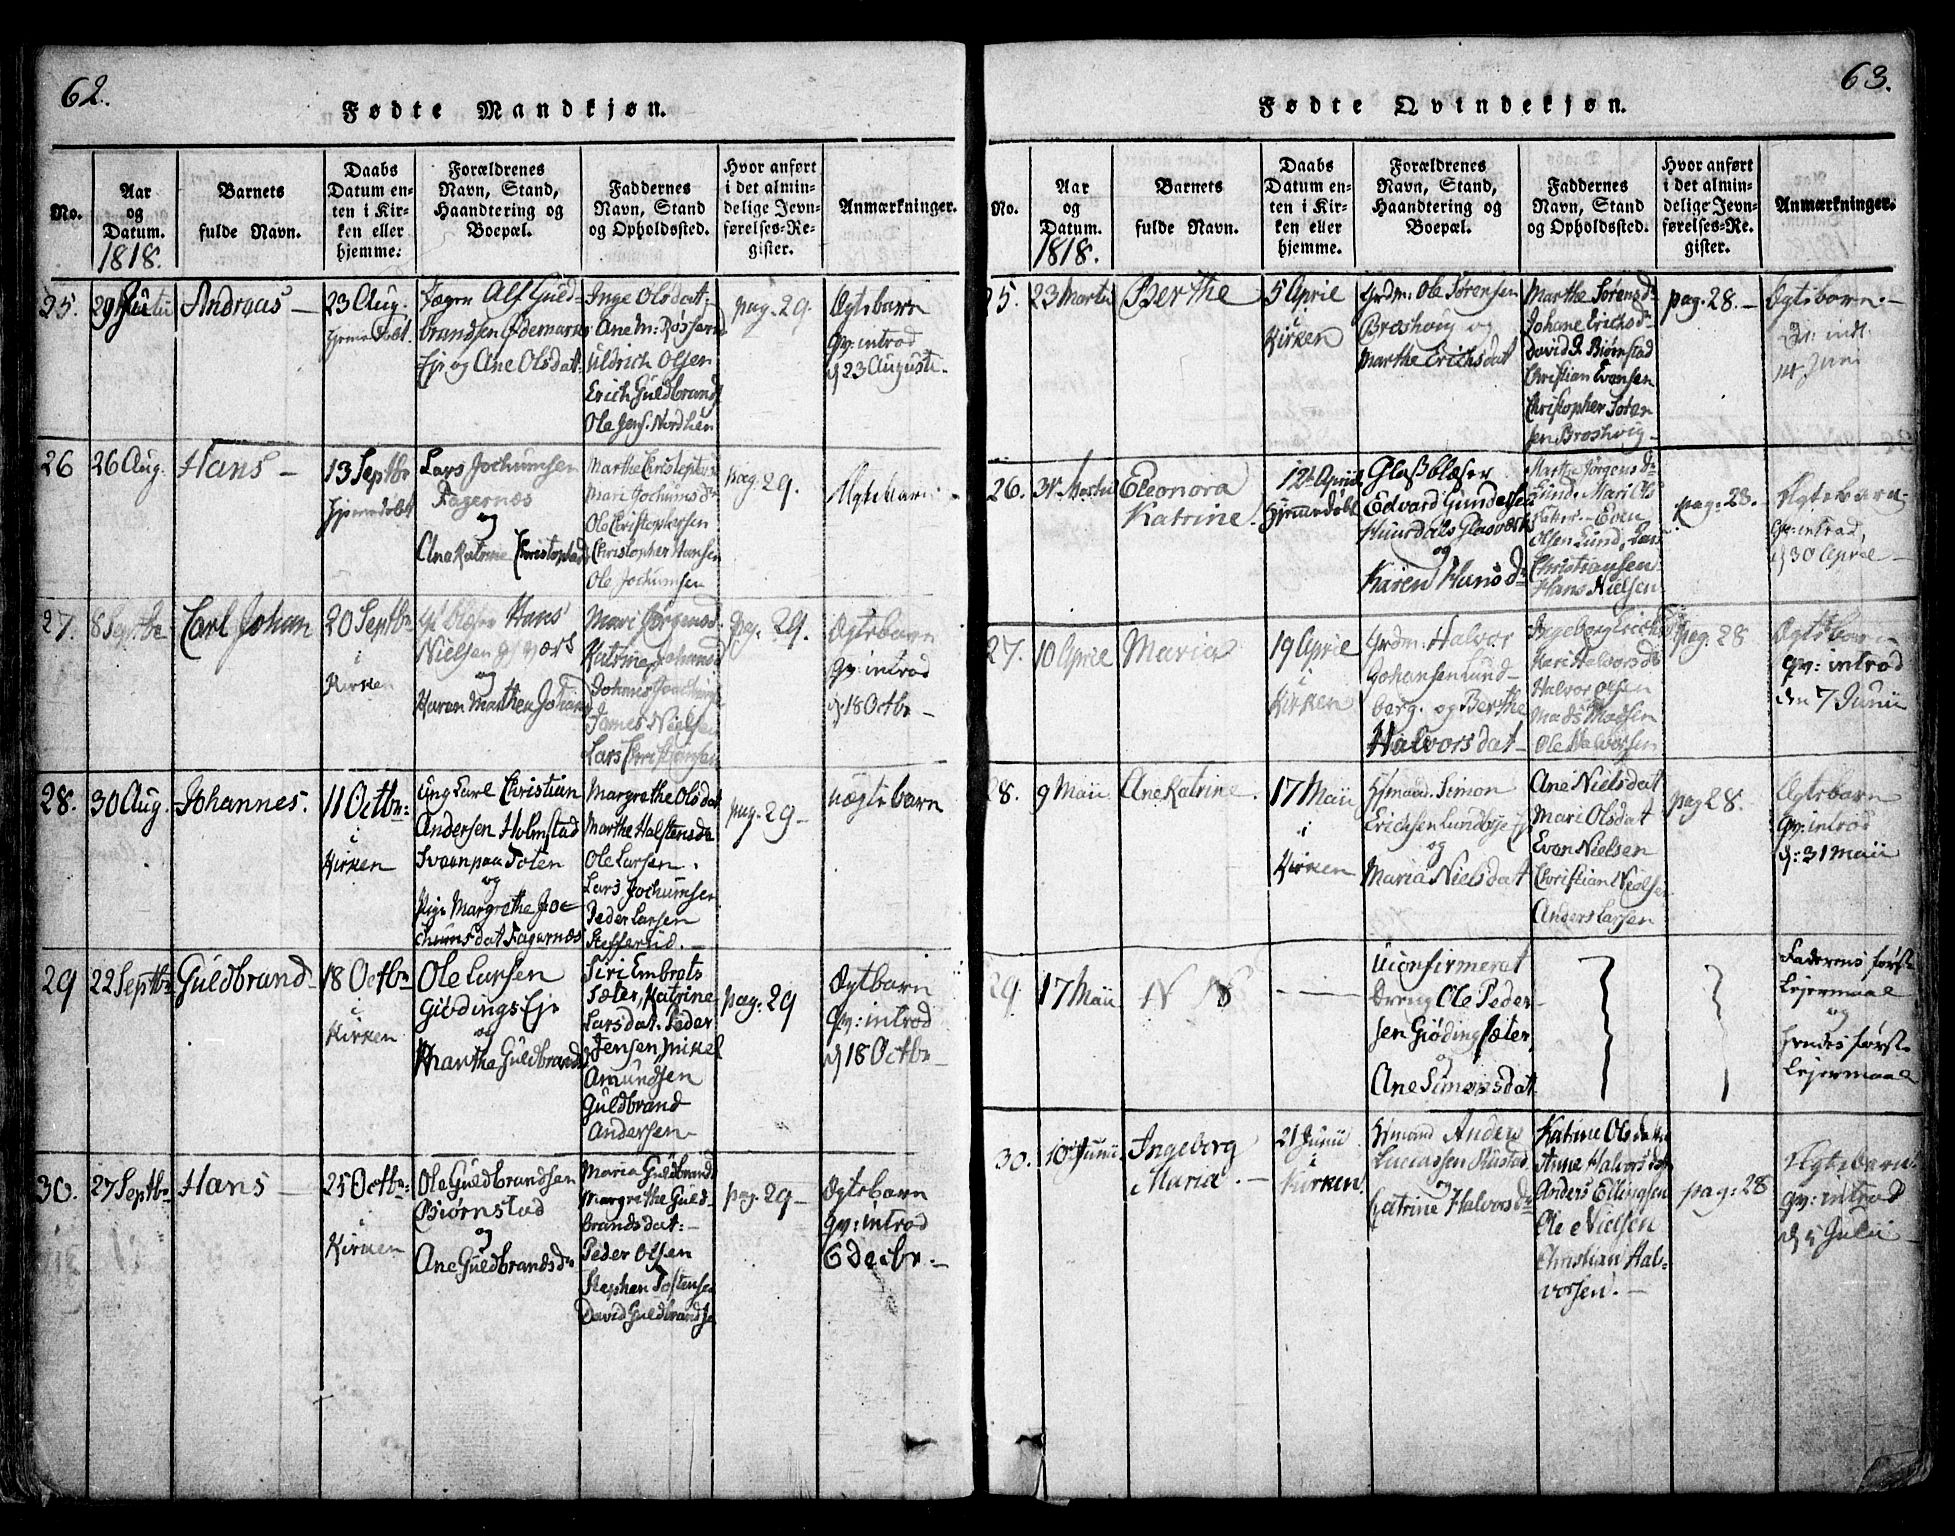 62.
Fødte Mandkjøn.
No.
Aar og Datum. 1818.
Barnets fulde Navn.
Daabs Datum enten i Kirken eller hjemme.
Forældrenes Navn, Stand, Haandtering og Boepæl.
Faddernes Navn, Stand og Opholdssted.
Hvor anført i det almindelige Jevnførelses-Register.
Anmærkninger.
25.
Andreas
23 Aug.
Jæger Alf Guld-
brandsen
Eje og Ane Olsdat:
Inge Olsdat:
Ane
Uldrich Olsen
Erich Guldbrands
Ole Jens. Nordhen
pag. 29.
Ægtebarn
Qv: introd
d. 23 Augusti.
26
26 Aug.
Hans
13 Septbr
hjemedøbt
Lars Jochumsen
Fagernæs
og
Ane Katrine Christophd
Marthe
Mari Jochumsdr
Ole Christophersen
Christopher Hansen
Ole Jochumsen
pag. 29.
Ægtebarn
27.
8 Septbr
Carl Johan
20 Septbr
i
Kirken
Hans
Nielsen
og
Karen Marthea Johans
Mari Jørgensd
Katrine Johansd
Johannes
Nielsen
Lars
pag. 29.
Ægtebarn
Qv: introd
d. 18 Octbr
28.
30 Aug.
Johannes.
11 Octbr:
i
Kirken
Ung Carl Christian
Andersen Holmstad
paa Toten
og
Pige Margrethe Jo-
chumsdat Fagernæs
Margrethe Olsdat
Marthe Halstensdr
Ole Larsen
Lars Jochumsen
Peder Larsen
pag. 29
uægtebarn
29
22 Septbr
Guldbrand
18 Octbr
i
Kirken
Ole Larsen
Giødings Eje
og
Marthe Guldbrands
Siri Embrets
Sæter, Katrine
Larsdat. Peder
Jensen, Mikel
Amundsen
Guldbrand
Andersen
pag. 29
Ægtbarn
Qv: introd
d. 18 Octbr
30.
27 Septbr
Hans
25 Octbr
i
Kirken
Ole Guldbrandsen
Biørnstad
og
Ane Guldbrandsdr
Maria Guldbrands
Margrethe Guld-
brandsdat:
Peder Olsen
Stephen Tostensen
David Guldbrands
pag. 29
Ægtebarn
Qv: introd
6 decbr:
63.
Fødte Qvindekjøn.
No.
Aar og Datum. 1818.
Barnets fulde Navn.
Daabs Datum enten i Kirken eller hjemme.
Forældrenes Navn, Stand, Haandtering og Boepæl.
Faddernes Navn, Stand og Opholdssted.
Hvor anført i det almindelige Jevnførelses-Register.
Anmærkninger.
25.
23 Martii
Berthe
5 April
i
Kirken
Grdm: Ole Sørensen
Broshvig og
Marthe Erichsdat
Marthe Sørensdr
Johane Erichsdr
David G. Biørnstad
Christian Evensen
Christopher Søren
sen Broshvig
pag. 28.
Ægtebarn.
14 Juni
26.
Eleonora
Katrine.
12te April
hjemmedøbt
Glasblæser
Edvard Gundersen
Hurdals Glasværk
og
Karen Hansdr
Marthe Jørgensdr
Lund. Mari Ols
Even
Olsen Lund,
Christiansen
Hans Nielsen
pag: 28.
Ægtebarn
Qv: introd.
d. 30 April
27.
10 April
Maria
19 April
i
Kirken
Grdm: Halvor
Johansen Lund-
berg. og Berthe
Halvorsdat
Ingeborg Erichs
Kari Halvorsdr
Halvor Olsen
Mads Madsen
Ole Halvorsen
pag. 28
Ægtebarn
Qv: introd
den 7 Junii
28.
9 Maii
Ane Katrine.
17 Maii
i
Kirken
Huusmand. Simon
Erichsen Lundbye
og
Maria Nielsdat
Ane Nielsdat
Mari Olsdat
Even Nielsen
Christian Nielsen
Anders Larsen
pag 28.
Ægtebarn
Qv: introd
d: 31 Maii
29.
17 Maii
N N
Uconfirmerat
Dreng Ole Peder-
sen Giøding Sæter
og
Ane Simonsdat
Faderens første
Lejermaal
og
hendes første
Lejermaal
30.
10 Junii
Ingeborg
Maria.
21 Junii
i
Kirken
Anders
Lucassen
og
Catrine Halvorsdr
Katrine Olsdatter
Anne Halvorsdat
Anders Ellingsen
Ole Nielsen
Christian Hal-
vorsen.
pag: 28
Ægtebarn.
Qv: introd
d. 5 Julii